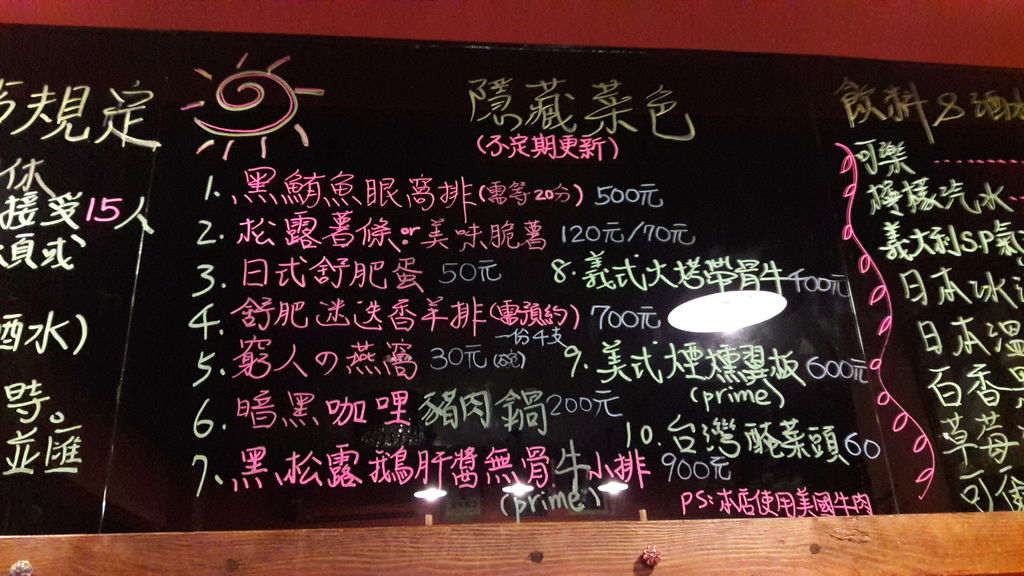 規定
休
接受15人
或
酒水)
時。
並匯
隱藏菜色
(不定期更新)
1. 黑鮪魚眼窩排(需等20分) 500元
2. 松露薯條or美味脆薯 120元/70元
3. 日式舒肥蛋 50元
4. 舒肥迷迭香羊排(需預約) 700元
一份4支
5. 窮人の燕窩 30元
6. 暗黑咖哩豬肉鍋200元
7. 黑松露鵝肝醬無骨牛小排 900元
(prime)
8. 義式火烤帶骨牛400元
9. 美式煙燻翼板 600元
(prime)
10. 台灣醃菜頭60
PS:本店使用美國牛肉
飲料&酒水
可樂
檸檬汽水
義大利S.P氣
日本冰
日本溫
百香果
草莓
可